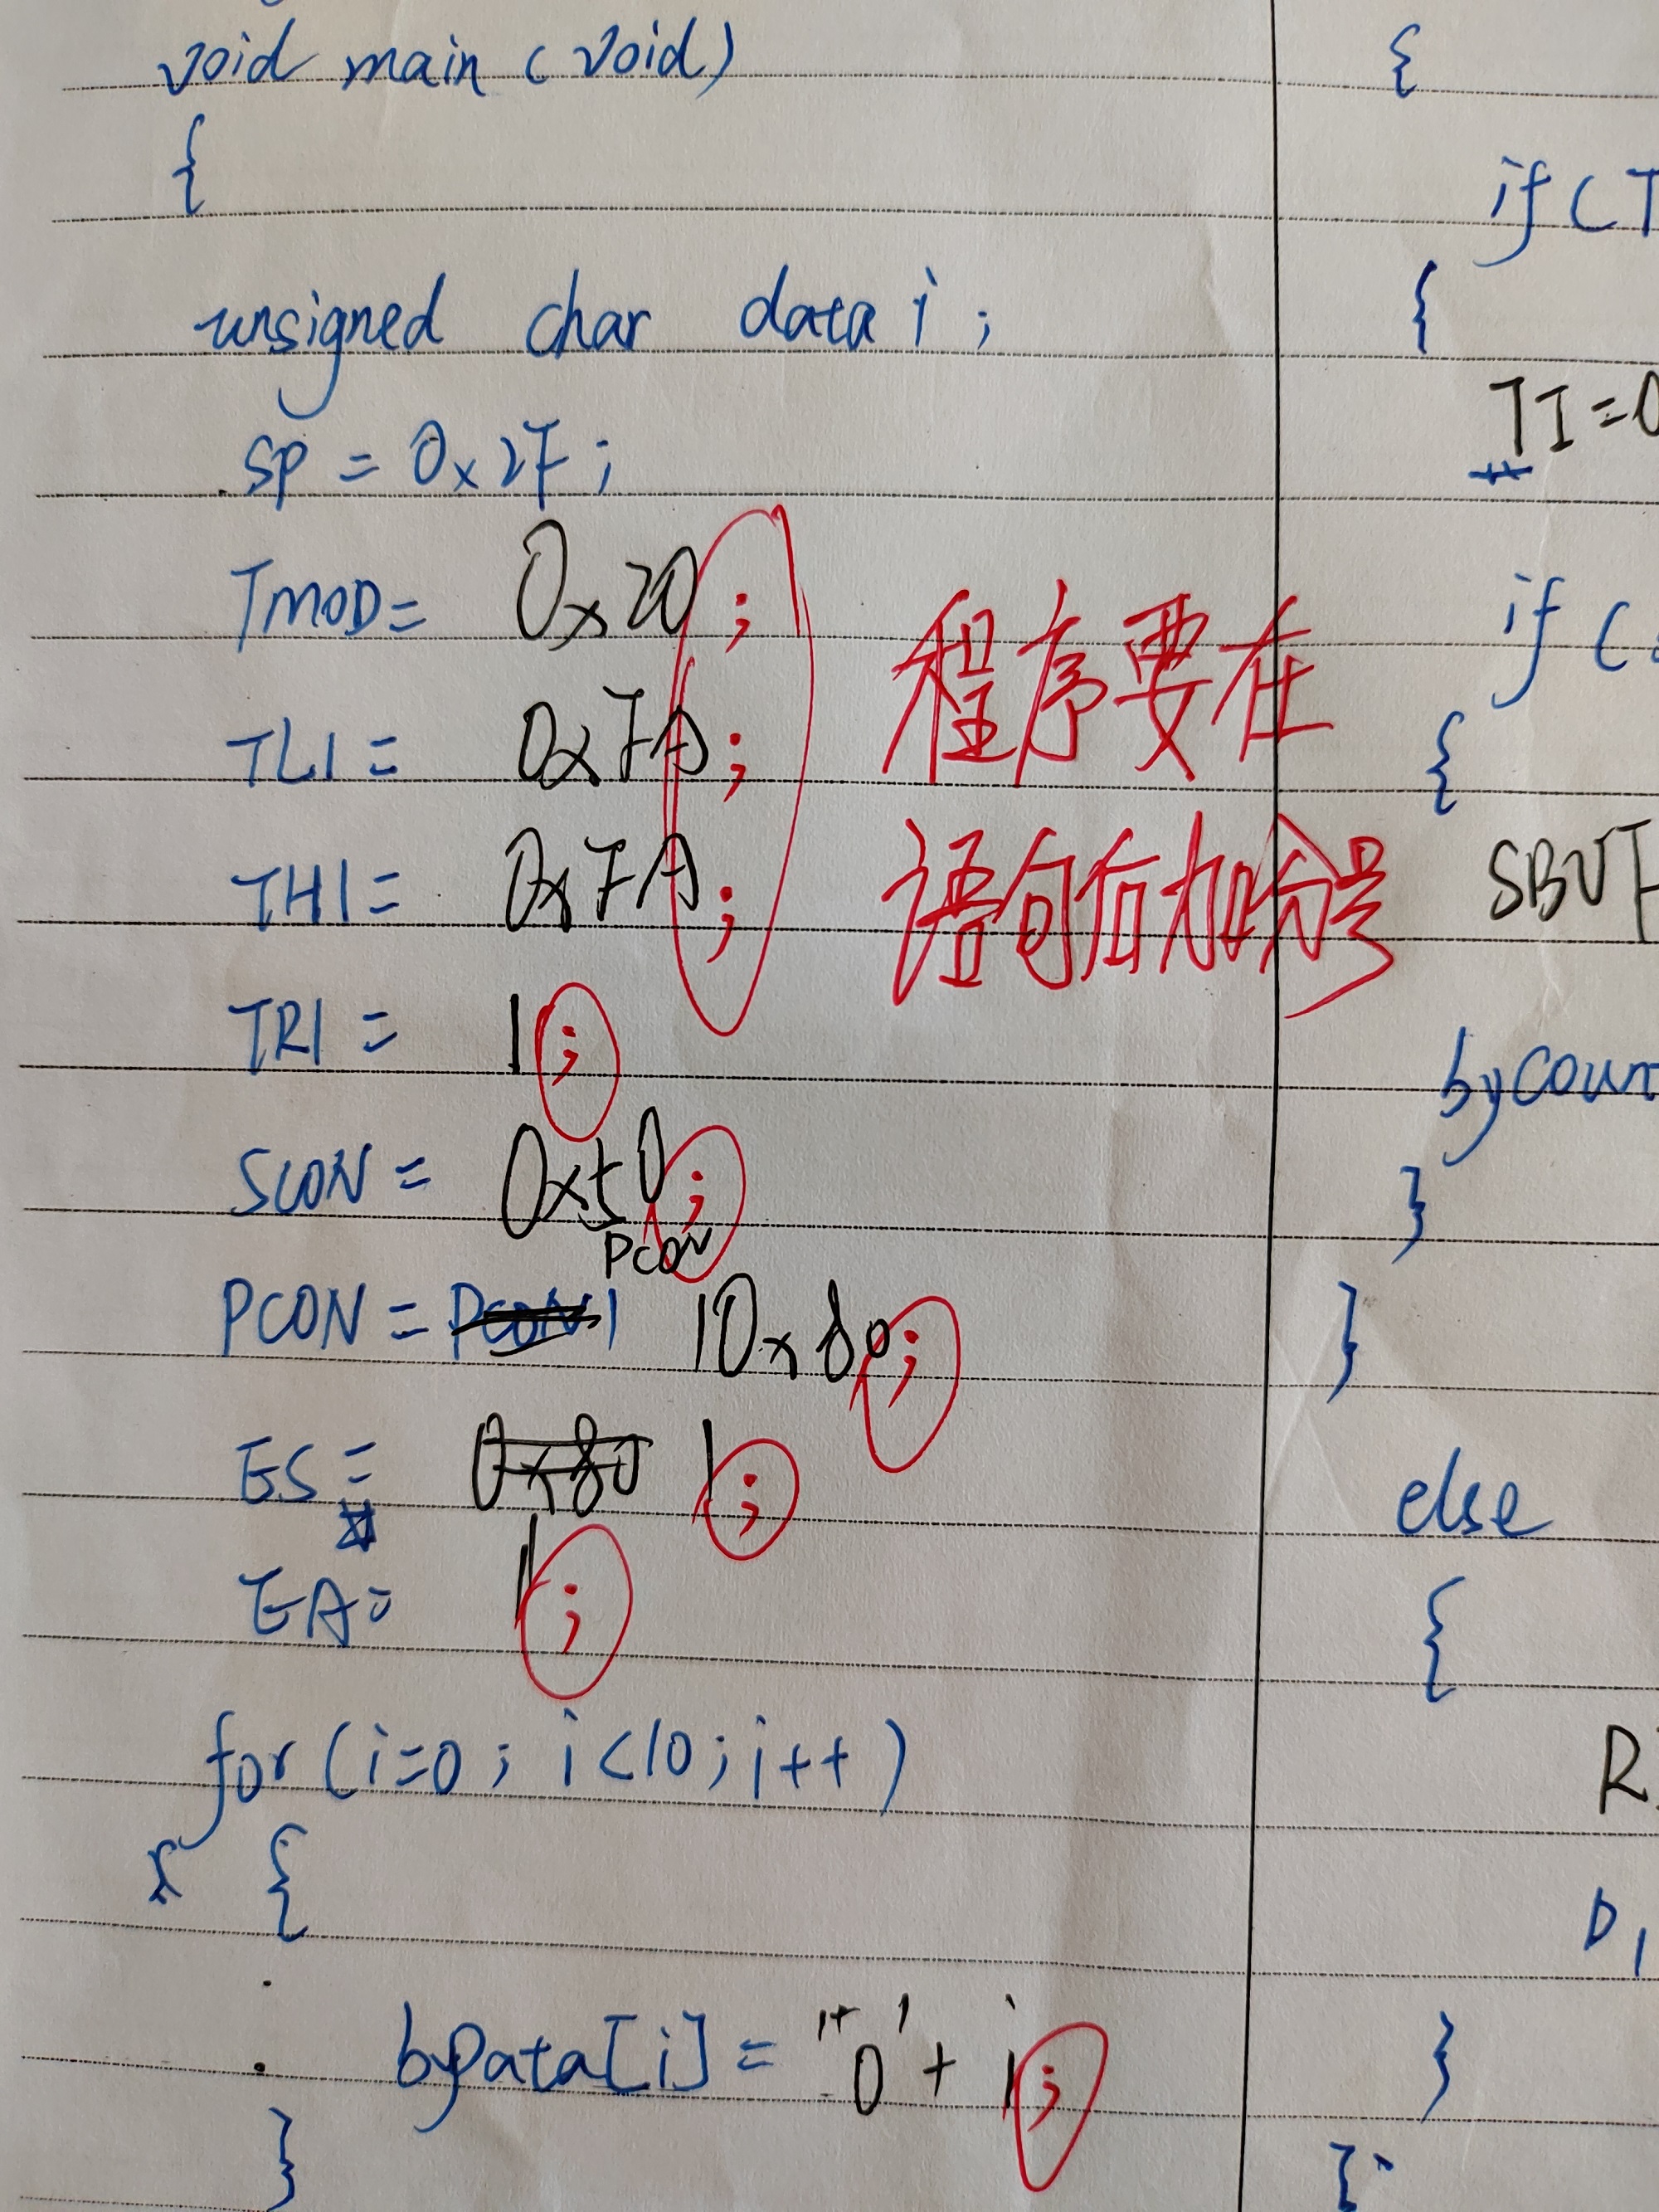 void main (void)
{
unsigned char data i;
SP = 0x2F;
TMOD= 0x20;
TL1= 0xFA;
TH1= 0xFA;
程序要在
语句后加分号
TR1= 1;
SCON= 0x50;
PCON
PCON= |0x80;
ES= 1;
EA= 1;
for(i=0; i<10; i++)
{
byData[i]= '0'+ i;
}
{
if(T
{
TI=0
if(
{
SBUF
byCount
}
}
else
{
R
P1
}
}